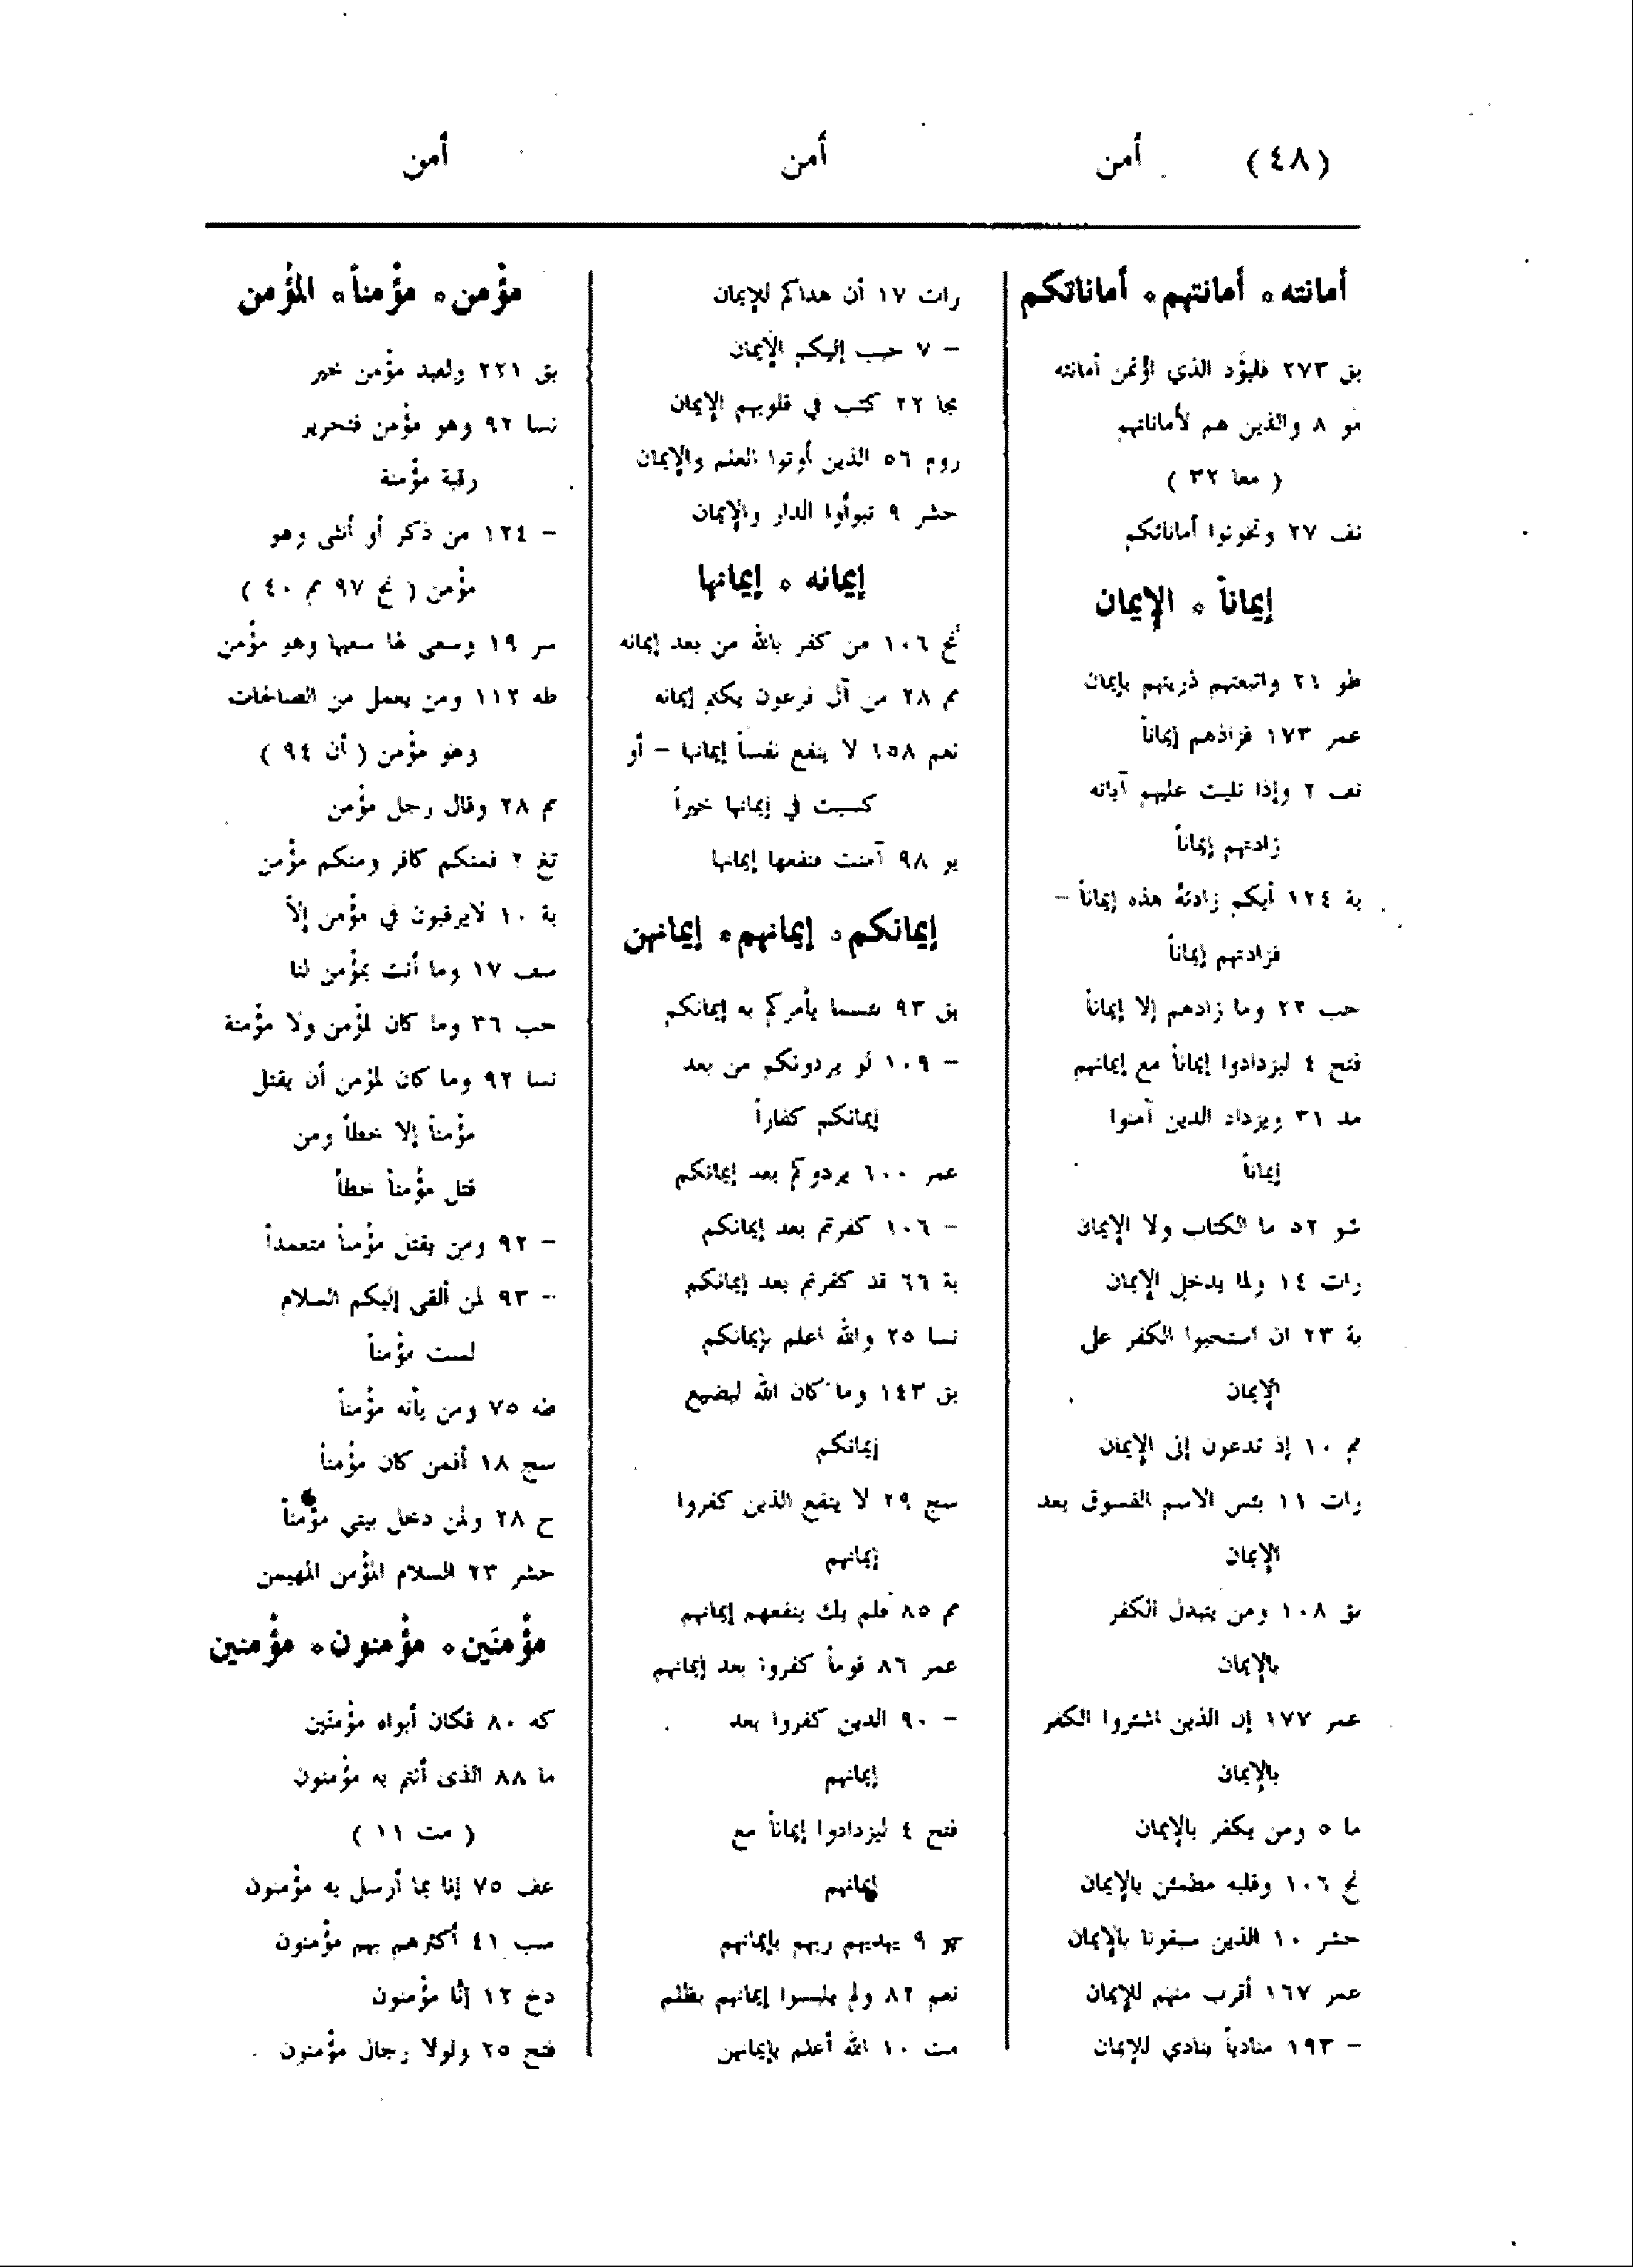 (٤٨) أمن أمن أمن
أمانته ٥ أمانتهم ٥ أماناتكم
بق ٢٧٣ فليؤد الذي اؤتمن أمانته
مو ٨ والذين هم لأماناتهم
( معا ٣٢ )
نف ٢٧ وتخونوا أماناتكم
إيماناً ٥ الإيمان
طو ٢١ واتبعتهم ذريتهم بإيمان
عمر ١٧٣ فزادهم إيماناً
نف ٢ وإذا تليت عليهم آياته
زادتهم إيماناً
بة ١٢٤ أيكم زادته هذه إيماناً –
فزادتهم إيماناً
حب ٢٢ وما زادهم إلا إيماناً
فتح ٤ ليزدادوا إيماناً مع إيمانهم
مد ٣١ ويزداد الذين آمنوا
إيماناً
شو ٥٢ ما الكتاب ولا الإيمان
رات ١٤ ولما يدخل الإيمان
بة ٢٣ ان استحبوا الكفر على
الإيمان
مم ١٠ إذ تدعون إلى الإيمان
رات ١١ بئس الاسم الفسوق بعد
الإيمان
بق ١٠٨ ومن يتبدل الكفر
بالإيمان
عمر ١٧٧ إن الذين اشتروا الكفر
بالإيمان
ما ٥ ومن يكفر بالإيمان
نح ١٠٦ وقلبه مطمئن بالإيمان
حشر ١٠ الذين سبقونا بالإيمان
عمر ١٦٧ أقرب منهم للإيمان
– ١٩٣ منادياً ينادي للإيمان
رات ١٧ أن هداكم للإيمان
– ٧ حبب إليكم الإيمان
مجا ٢٢ كتب في قلوبهم الإيمان
روم ٥٦ الذين أوتوا العلم والإيمان
حشر ٩ تبوأوا الدار والإيمان
إيمانه ٥ إيمانها
نح ١٠٦ من كفر بالله من بعد إيمانه
مم ٢٨ من آل فرعون يكتم إيمانه
نعم ١٥٨ لا ينفع نفساً إيمانها – أو
كسبت في إيمانها خيراً
يو ٩٨ آمنت فنفعها إيمانها
إيمانكم ٥ إيمانهم ٥ إيمانهن
بق ٩٣ بئسما يأمركم به إيمانكم
– ١٠٩ لو يردونكم من بعد
إيمانكم كفاراً
عمر ١٠٠ يردوكم بعد إيمانكم
– ١٠٦ كفرتم بعد إيمانكم
بة ٦٦ قد كفرتم بعد إيمانكم
نسا ٢٥ والله اعلم بإيمانكم
بق ١٤٣ وما كان الله ليضيع
إيمانكم
سج ٢٩ لا ينفع الذين كفروا
إيمانهم
مم ٨٥ فلم يك ينفعهم إيمانهم
عمر ٨٦ قوماً كفروا بعد إيمانهم
– ٩٠ الذين كفروا بعد
إيمانهم
فتح ٤ ليزدادوا إيماناً مع
إيمانهم
٩ يهديهم ربهم بإيمانهم
نعم ٨٢ ولم يلبسوا إيمانهم بظلم
مت ١٠ الله أعلم بإيمانهن
مؤمن ٥ مؤمناً ٥ المؤمن
بق ٢٢١ ولعبد مؤمن خير
نسا ٩٢ وهو مؤمن فتحرير
رقبة مؤمنة
– ١٢٤ من ذكر أو أنثى وهو
مؤمن ( نح ٩٧ مم ٤٠ )
سر ١٩ وسعى لها سعيها وهو مؤمن
طه ١١٢ ومن يعمل من الصالحات
وهو مؤمن ( أن ٩٤ )
مم ٢٨ وقال رجل مؤمن
تغ ٢ فمنكم كافر ومنكم مؤمن
بة ١٠ لايرقبون في مؤمن إلاً
سف ١٧ وما أنت بمؤمن لنا
حب ٣٦ وما كان لمؤمن ولا مؤمنة
نسا ٩٢ وما كان لمؤمن أن يقتل
مؤمناً إلا خطأً ومن
قتل مؤمناً خطأً
– ٩٢ ومن يقتل مؤمناً متعمداً
– ٩٣ لمن ألقى إليكم السلام
لست مؤمناً
طه ٧٥ ومن يأته مؤمناً
سج ١٨ أفمن كان مؤمناً
ح ٢٨ ولمن دخل بيتي مؤمناً
حشر ٢٣ السلام المؤمن المهيمن
مؤمنَين ٥ مؤمنون ٥ مؤمنين
كه ٨٠ فكان أبواه مؤمنَين
ما ٨٨ الذى أنتم به مؤمنون
( مت ١١ )
عف ٧٥ إنا بما أرسل به مؤمنون
سب ٤١ أكثرهم بهم مؤمنون
دخ ١٢ إنّا مؤمنون
فتح ٢٥ ولولا رجال مؤمنون